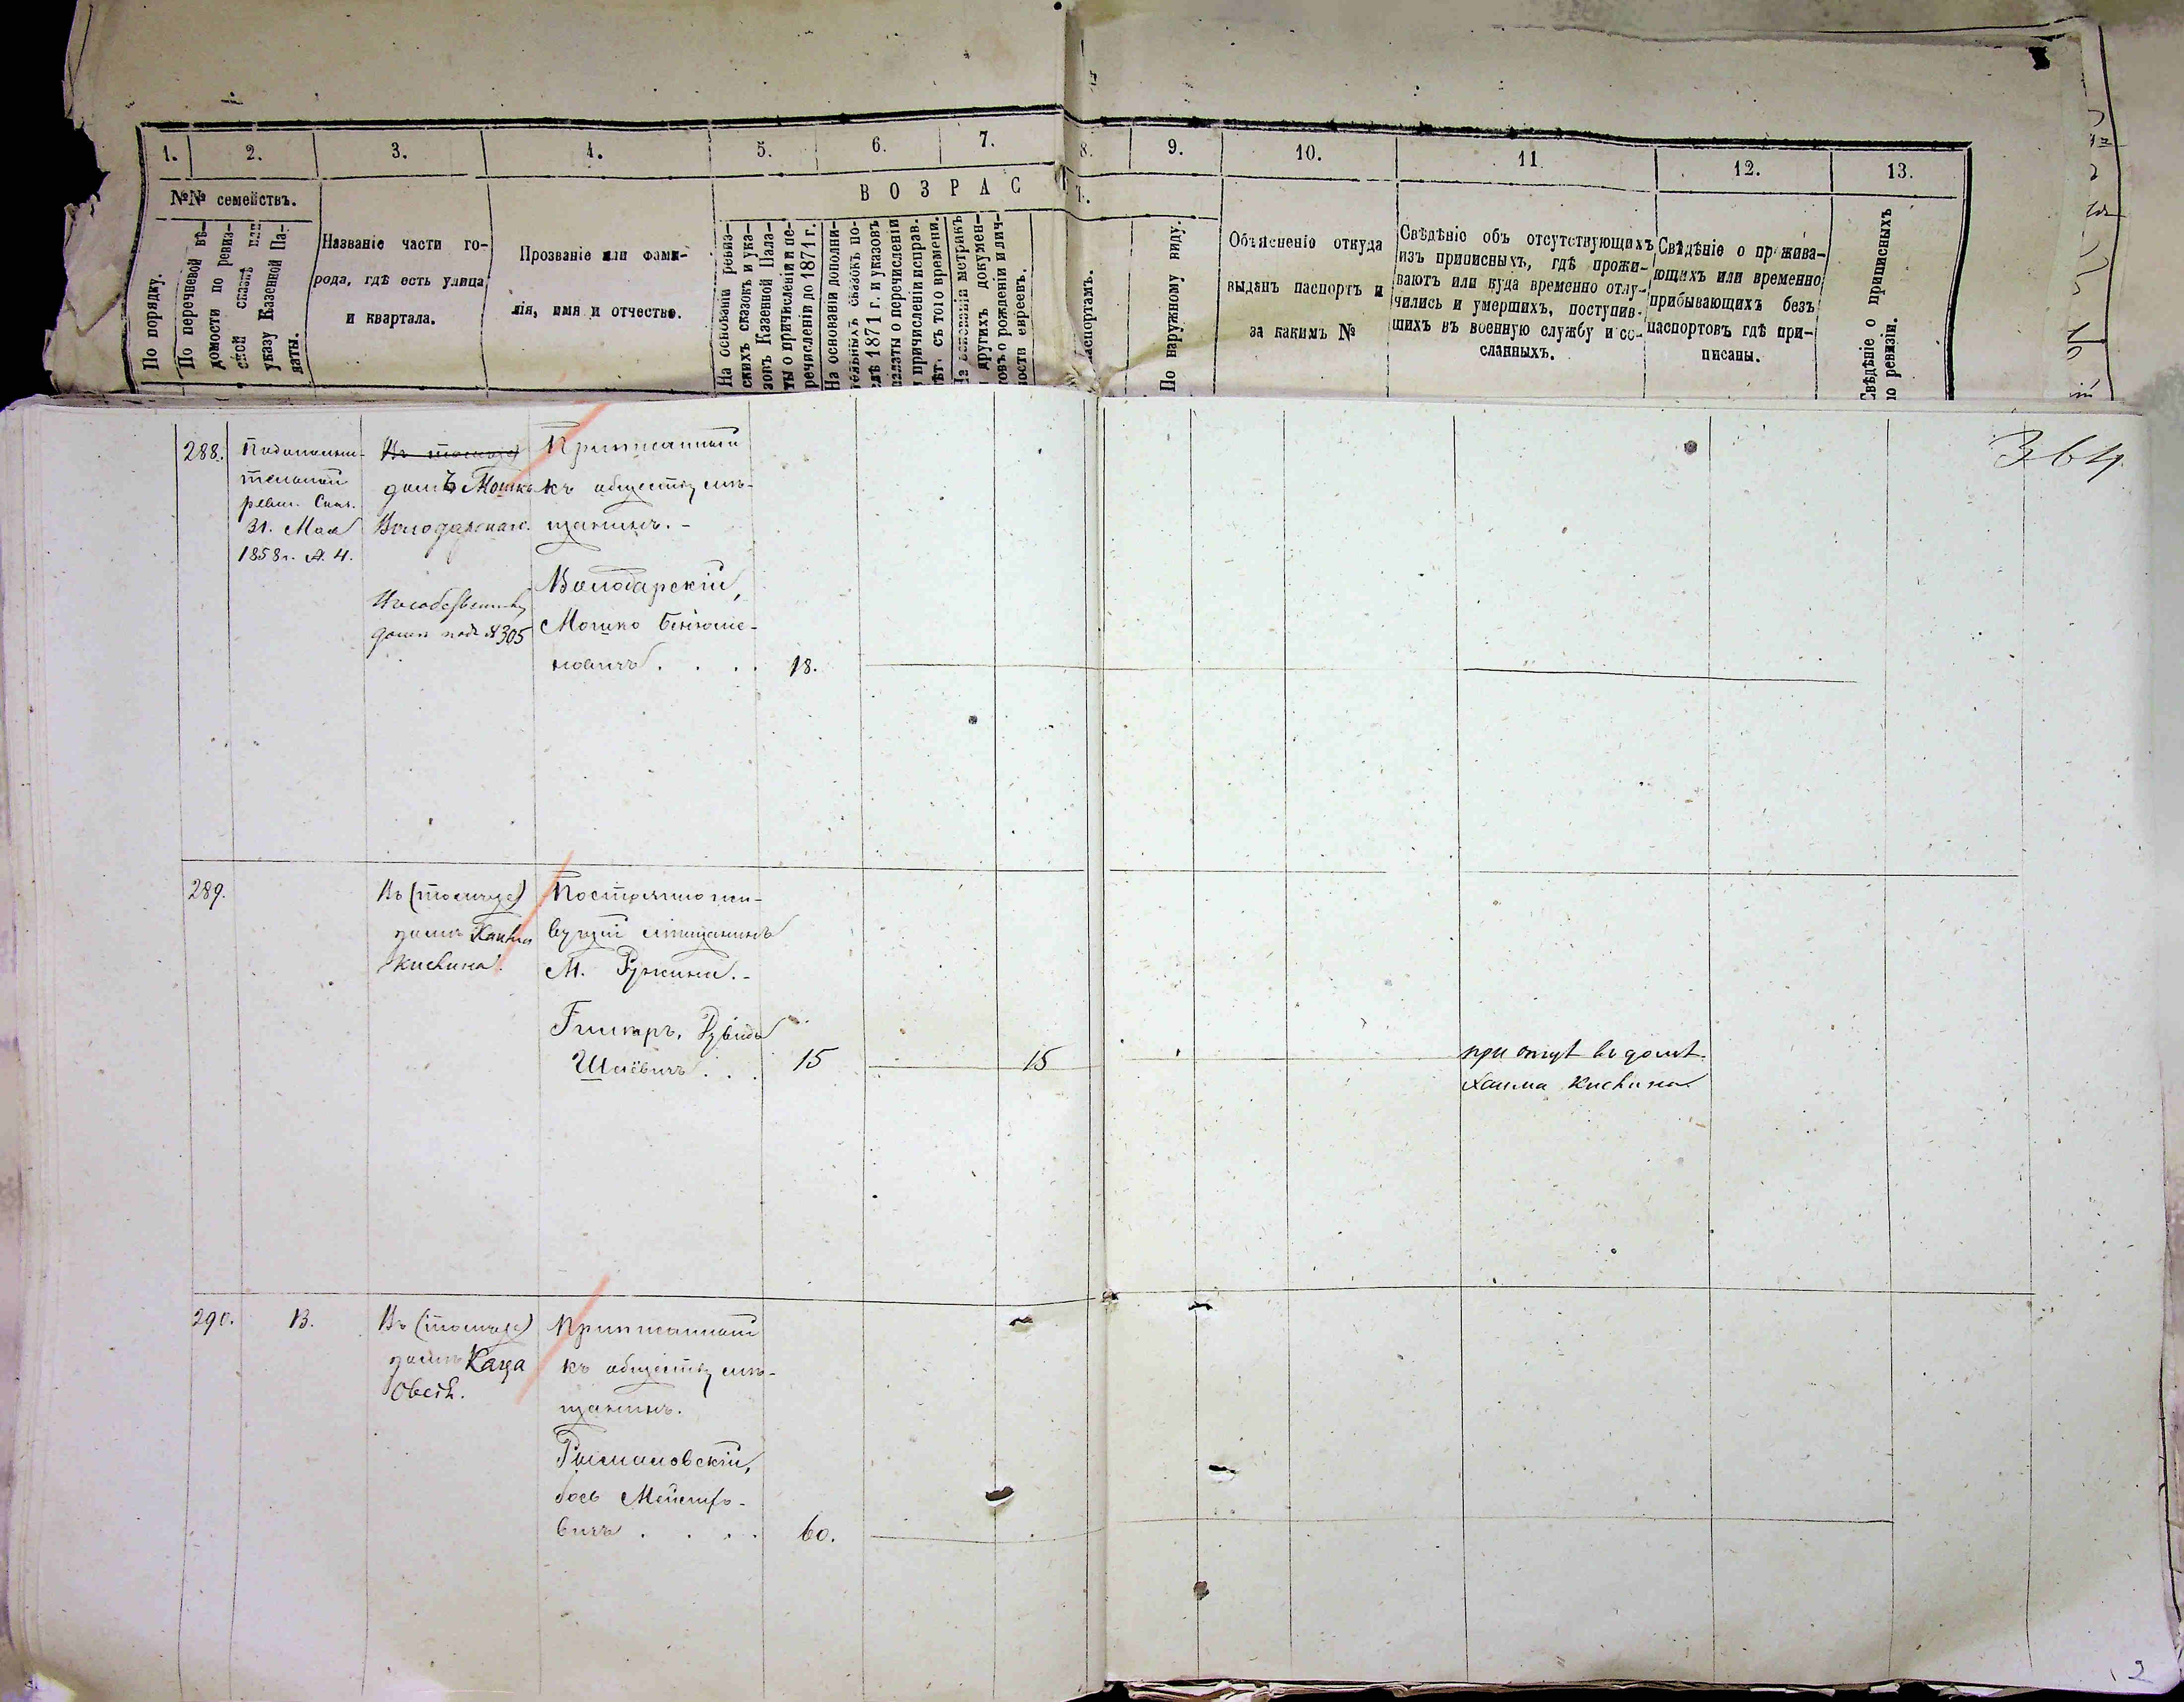 1. 2. 3. 4. 5. 6. 7. 8. 9. 10. 11. 12. 13.
№№ семействъ.
В О З Р А С Т.
По порядку.
По перечневой вѣ-
домости по ревиз-
ской сказкѣ или
указу Казенной Па-
латы.
Названіе части го-
рода, гдѣ есть улица
и квартала.
Прозваніе или фами-
лія, имя и отчество.
На основаніи ревиз-
скихъ сказокъ и ука-
зовъ Казенной Пала-
ты о причисленіи и пе-
речисленіи до 1871 г.
На основаніи дополни-
тельныхъ сказокъ по-
слѣ 1871 г. и указовъ
палаты о перечисленіи
и причисленіи исправ.
лѣт. съ того времени.
На основаніи метрикъ
и другихъ докумен-
товъ о рожденіи и лич-
ности евреевъ.
паспортамъ.
По наружному виду.
Объясненіе откуда
выданъ паспортъ и
за какимъ №
Свѣдѣніе объ отсутствующихъ
изъ приписныхъ, гдѣ прожи-
ваютъ или куда временно отлу-
чились и умершихъ, поступив-
шихъ въ военную службу и со-
сланныхъ.
Свѣдѣніе о прожива-
ющихъ или временно
прибывающихъ безъ
паспортовъ гдѣ при-
писаны.
Свѣдѣніе о приписныхъ
по ревизіи.
364
288.
По дополни-
тельной
ревиз. Сказ.
31. Мая
1858 г. №. 4.
домѣ Мошка
Володарскаго.
домѣ подъ №305
Приписанный
къ обществу мѣ-
щанинъ. -
Володарскій,
Мошко Беніоми-
новичъ . . . . 18.
289.
Въ
домѣ Хаима
Кисвина.
Постоянно жи-
вущій мѣщанинъ
М. Ружина. -
Рувинъ
Шаёвичъ . . . 15 15
при отцѣ въ домѣ
Хаима Кисвина
290. 13.
Въ
домѣ Каца
Приписанный
къ обществу мѣ-
щанинъ.
Рымановскій,
вичъ . . . . 60.
2